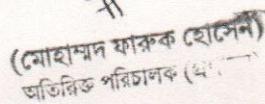 (মোহাম্মদ ফারুক হোসেন)
অতিরিক্ত পরিচালক